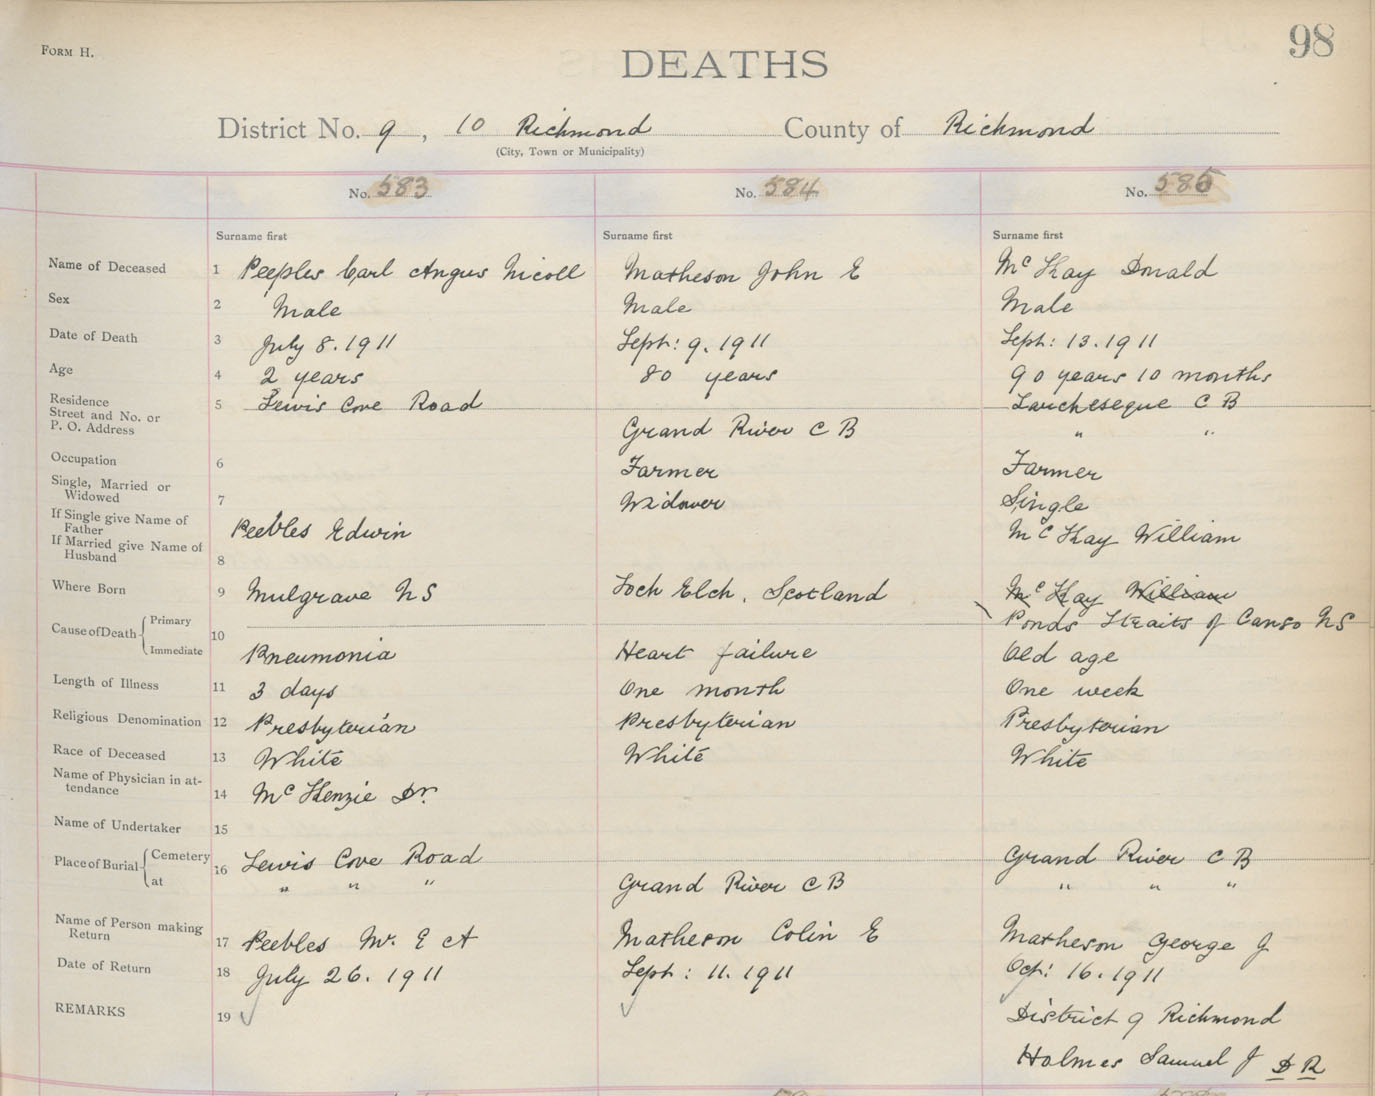 FORM H.
98
DEATHS
District No. 9, 10 Richmond County of Richmond
(City, Town or Municipality)
No. 583 No. 584 No. 585
Surname first Surname first Surname first
Name of Deceased 1 Peeples Carl Angus Nicoll Matheson John E McKay Donald
Sex 2 Male Male Male
Date of Death 3 July 8. 1911 Sept: 9. 1911 Sept: 13. 1911
Age 4 2 years 80 years 90 years 10 months
Residence 5 Lewis Cove Road Larcheseque C B
Street and No. or
P. O. Address Grand River C B " "
Occupation 6 Farmer Farmer
Single, Married or
Widowed 7 Widower Single
If Single give Name of
Father Peebles Edwin McKay William
If Married give Name of
Husband 8
Where Born 9 Mulgrave NS Loch Elch, Scotland McKay William
Ponds Straits of Canso NS
Cause of Death Primary 10
Immediate Pneumonia Heart failure Old age
Length of Illness 11 3 days One month One week
Religious Denomination 12 Presbyterian Presbyterian Presbyterian
Race of Deceased 13 White White White
Name of Physician in at-
tendance 14 McKenzie Dr.
Name of Undertaker 15
Place of Burial Cemetery 16 Lewis Cove Road Grand River C B
at " " " Grand River C B " " "
Name of Person making
Return 17 Peebles Mr. E A Matheson Colin E Matheson George J
Date of Return 18 July 26. 1911 Sept: 11. 1911 Oct: 16. 1911
REMARKS 19 District 9 Richmond
Holmes Samuel J D R